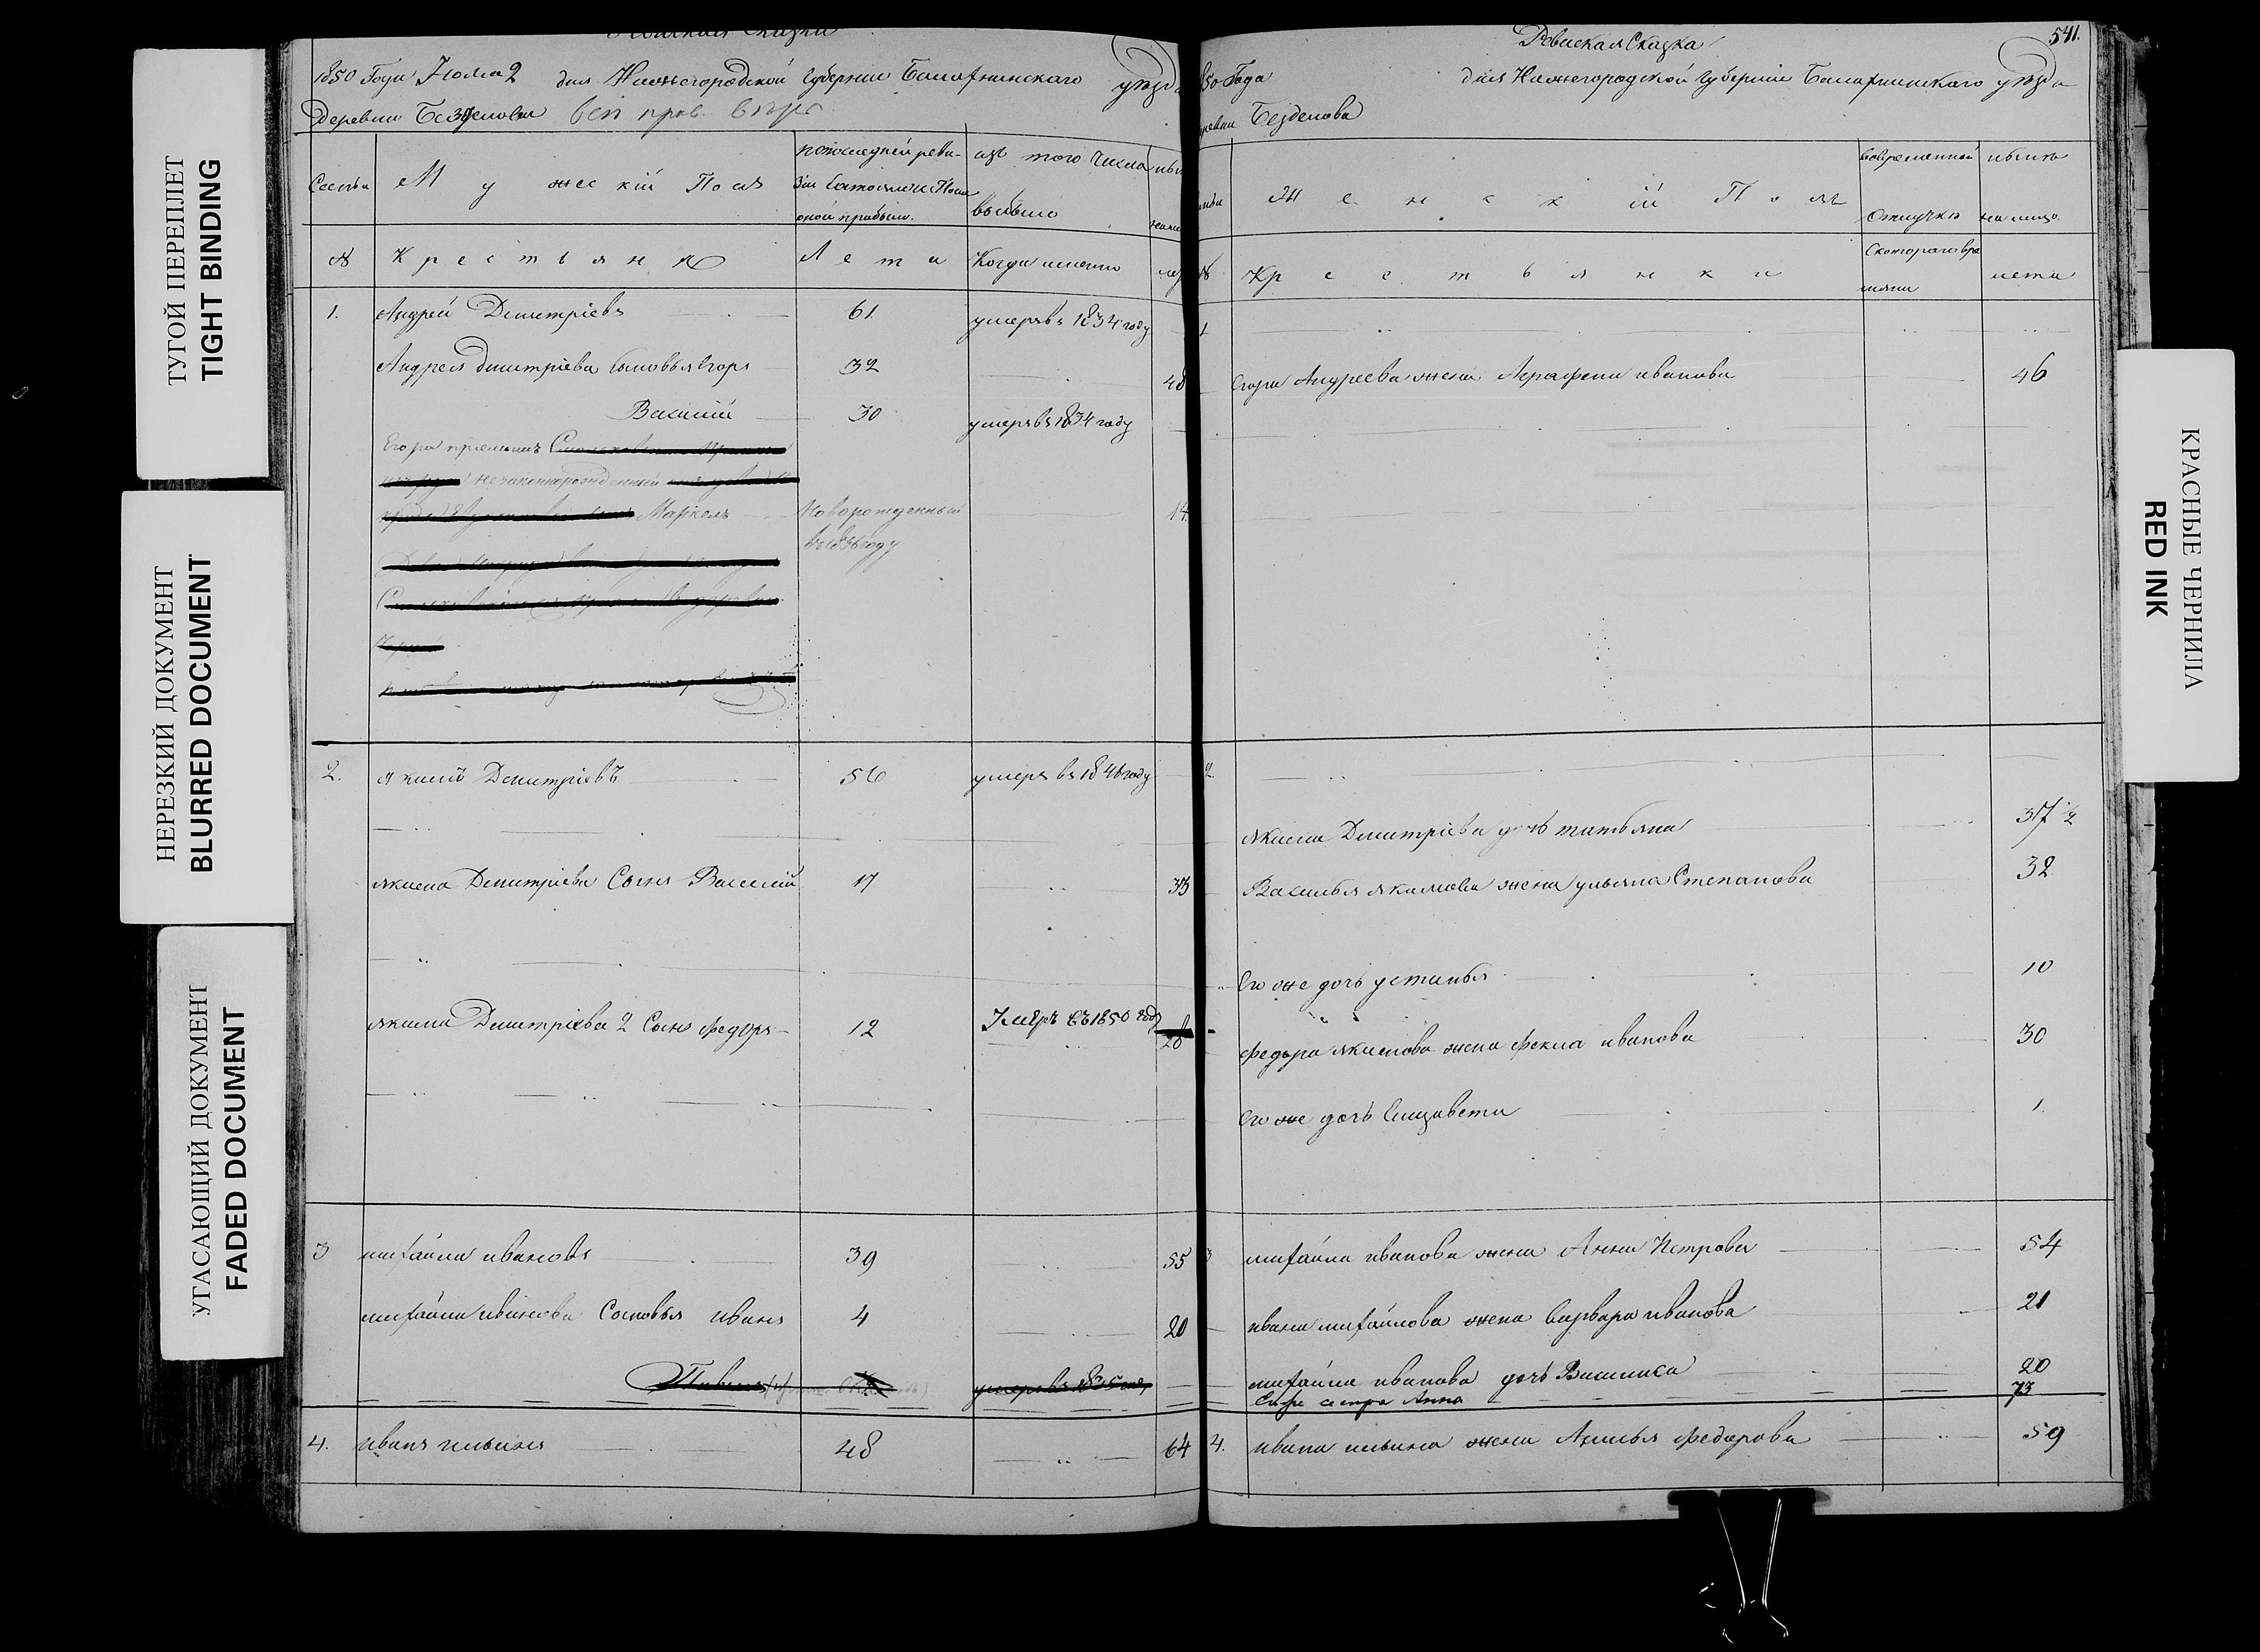 ТУГОЙ ПЕРЕПЛЕТ
TIGHT BINDING
НЕРЕЗКИЙ ДОКУМЕНТ
BLURRED DOCUMENT
УГАСАЮЩИЙ ДОКУМЕНТ
FADED DOCUMENT
1850 Года Июля 2 дня Нижегородской Губернии Балахнинскаго уезда
Деревни Безделова
Семьи
Мужескій Полъ
по последней реви-
зіи состояло и После
оной прибыло.
изъ того числа
выбыло
№ Крестьянъ Лета Когда именно
1. Андрей Дмитріевъ 61 умеръ въ 1834 году
Андрея Дмитріева сыновья Егоръ 32 48
Василій 30 умеръ въ 1834 году
Егора пріемышъ
незаконнорожденный
Маркелъ Новорожденный 14
въ 1836 году
2. Якимъ Дмитріевъ 56 умеръ въ 1846 году
Якима Дмитріева Сынъ Василій 17 33
Якима Дмитріева 2 Сынъ Федоръ 12 Умеръ въ 1850 году 28
3 Михайла Ивановъ 39 55
Михайла Иванова Сыновья Иванъ 4 20
умеръ въ 1835 году
4. Иванъ Ильинъ 48 64
541.
Ревиская Сказка
1850 Года дня Нижегородской Губерніи Балахнинскаго уезда
Безделова
Женскій Полъ
Во временной
Отлучке
ныне
на лицо.
№ Крестьянки
С котораго вре
мяни
лета
1
Егора Андреева жена Аграфена Иванова 46
2.
Якима Дмитріева дочь Татьяна 37 1/2
Василья Якимова жена Ульяна Степанова 32
Его же дочь Устинья 10
Федора Якимова жена Фекла Иванова 30
Его же дочь Елизавета 1
3 Михайла Иванова жена Анна Петрова 54
Ивана Михайлова жена Варвара Иванова 21
Михайла Иванова дочь Василиса 20
сестра Анна 73
4. Ивана Ильина жена Акилья Федорова 59
КРАСНЫЕ ЧЕРНИЛА
RED INK